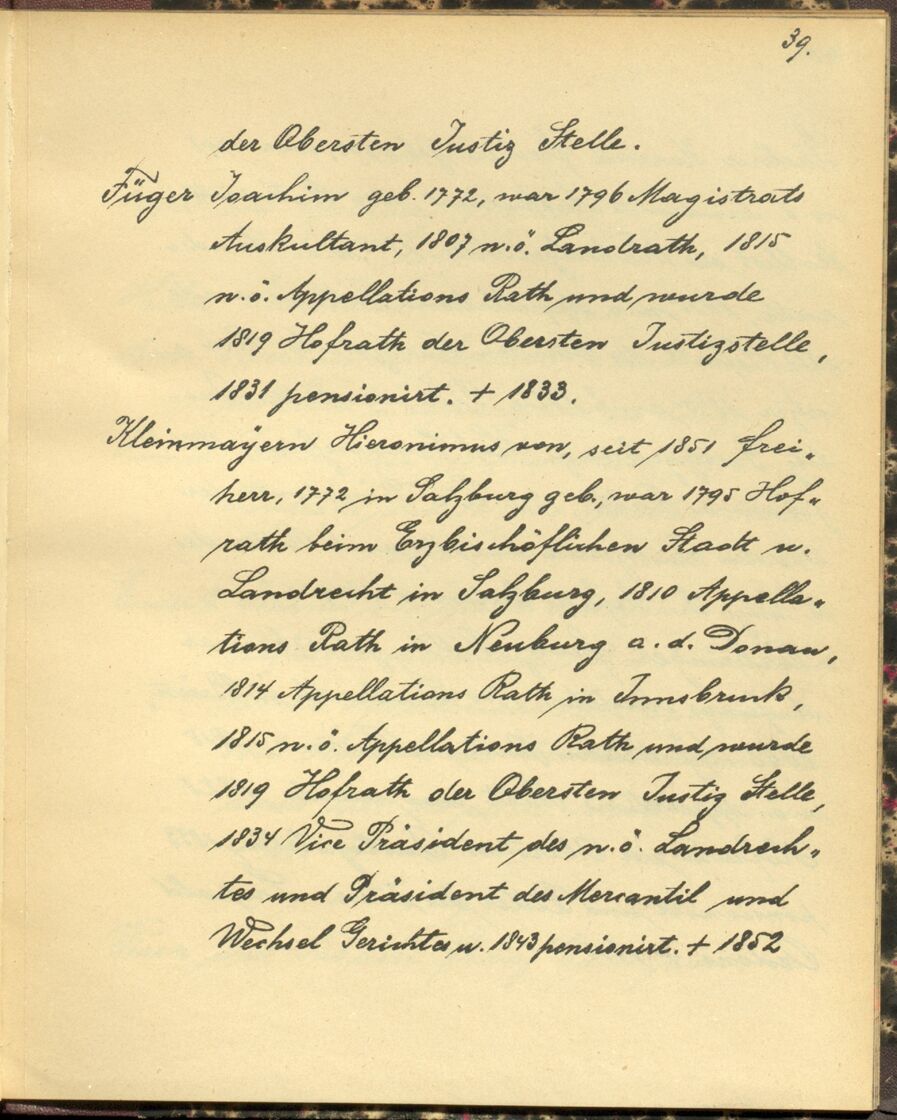 39.
der Obersten Justiz Stelle.
Füger Joachim geb. 1772, war 1796 Magistrats
Auskultant, 1807 n.ö. Landrath, 1815
n.ö. Appellations Rath und wurde
1819 Hofrath der Obersten Justizstelle,
1831 pensionirt. + 1833.
Kleinmayern Hieronimus von, seit 1851 frei„
herr, 1772 in Salzburg geb., war 1795 Hof„
rath beim Erzbischöflichen Stadt u.
Landrecht in Salzburg, 1810 Appella„
tions Rath in Neuburg a. d. Donau,
1814 Appellations Rath in Innsbruck,
1815 n. ö. Appellations Rath und wurde
1819 Hofrath der Obersten Justiz Stelle,
1834 Vice Präsident des n. ö. Landrech„
tes und Präsident des Mercantil und
Wechsel Gerichtes u. 1843 pensionirt. + 1852